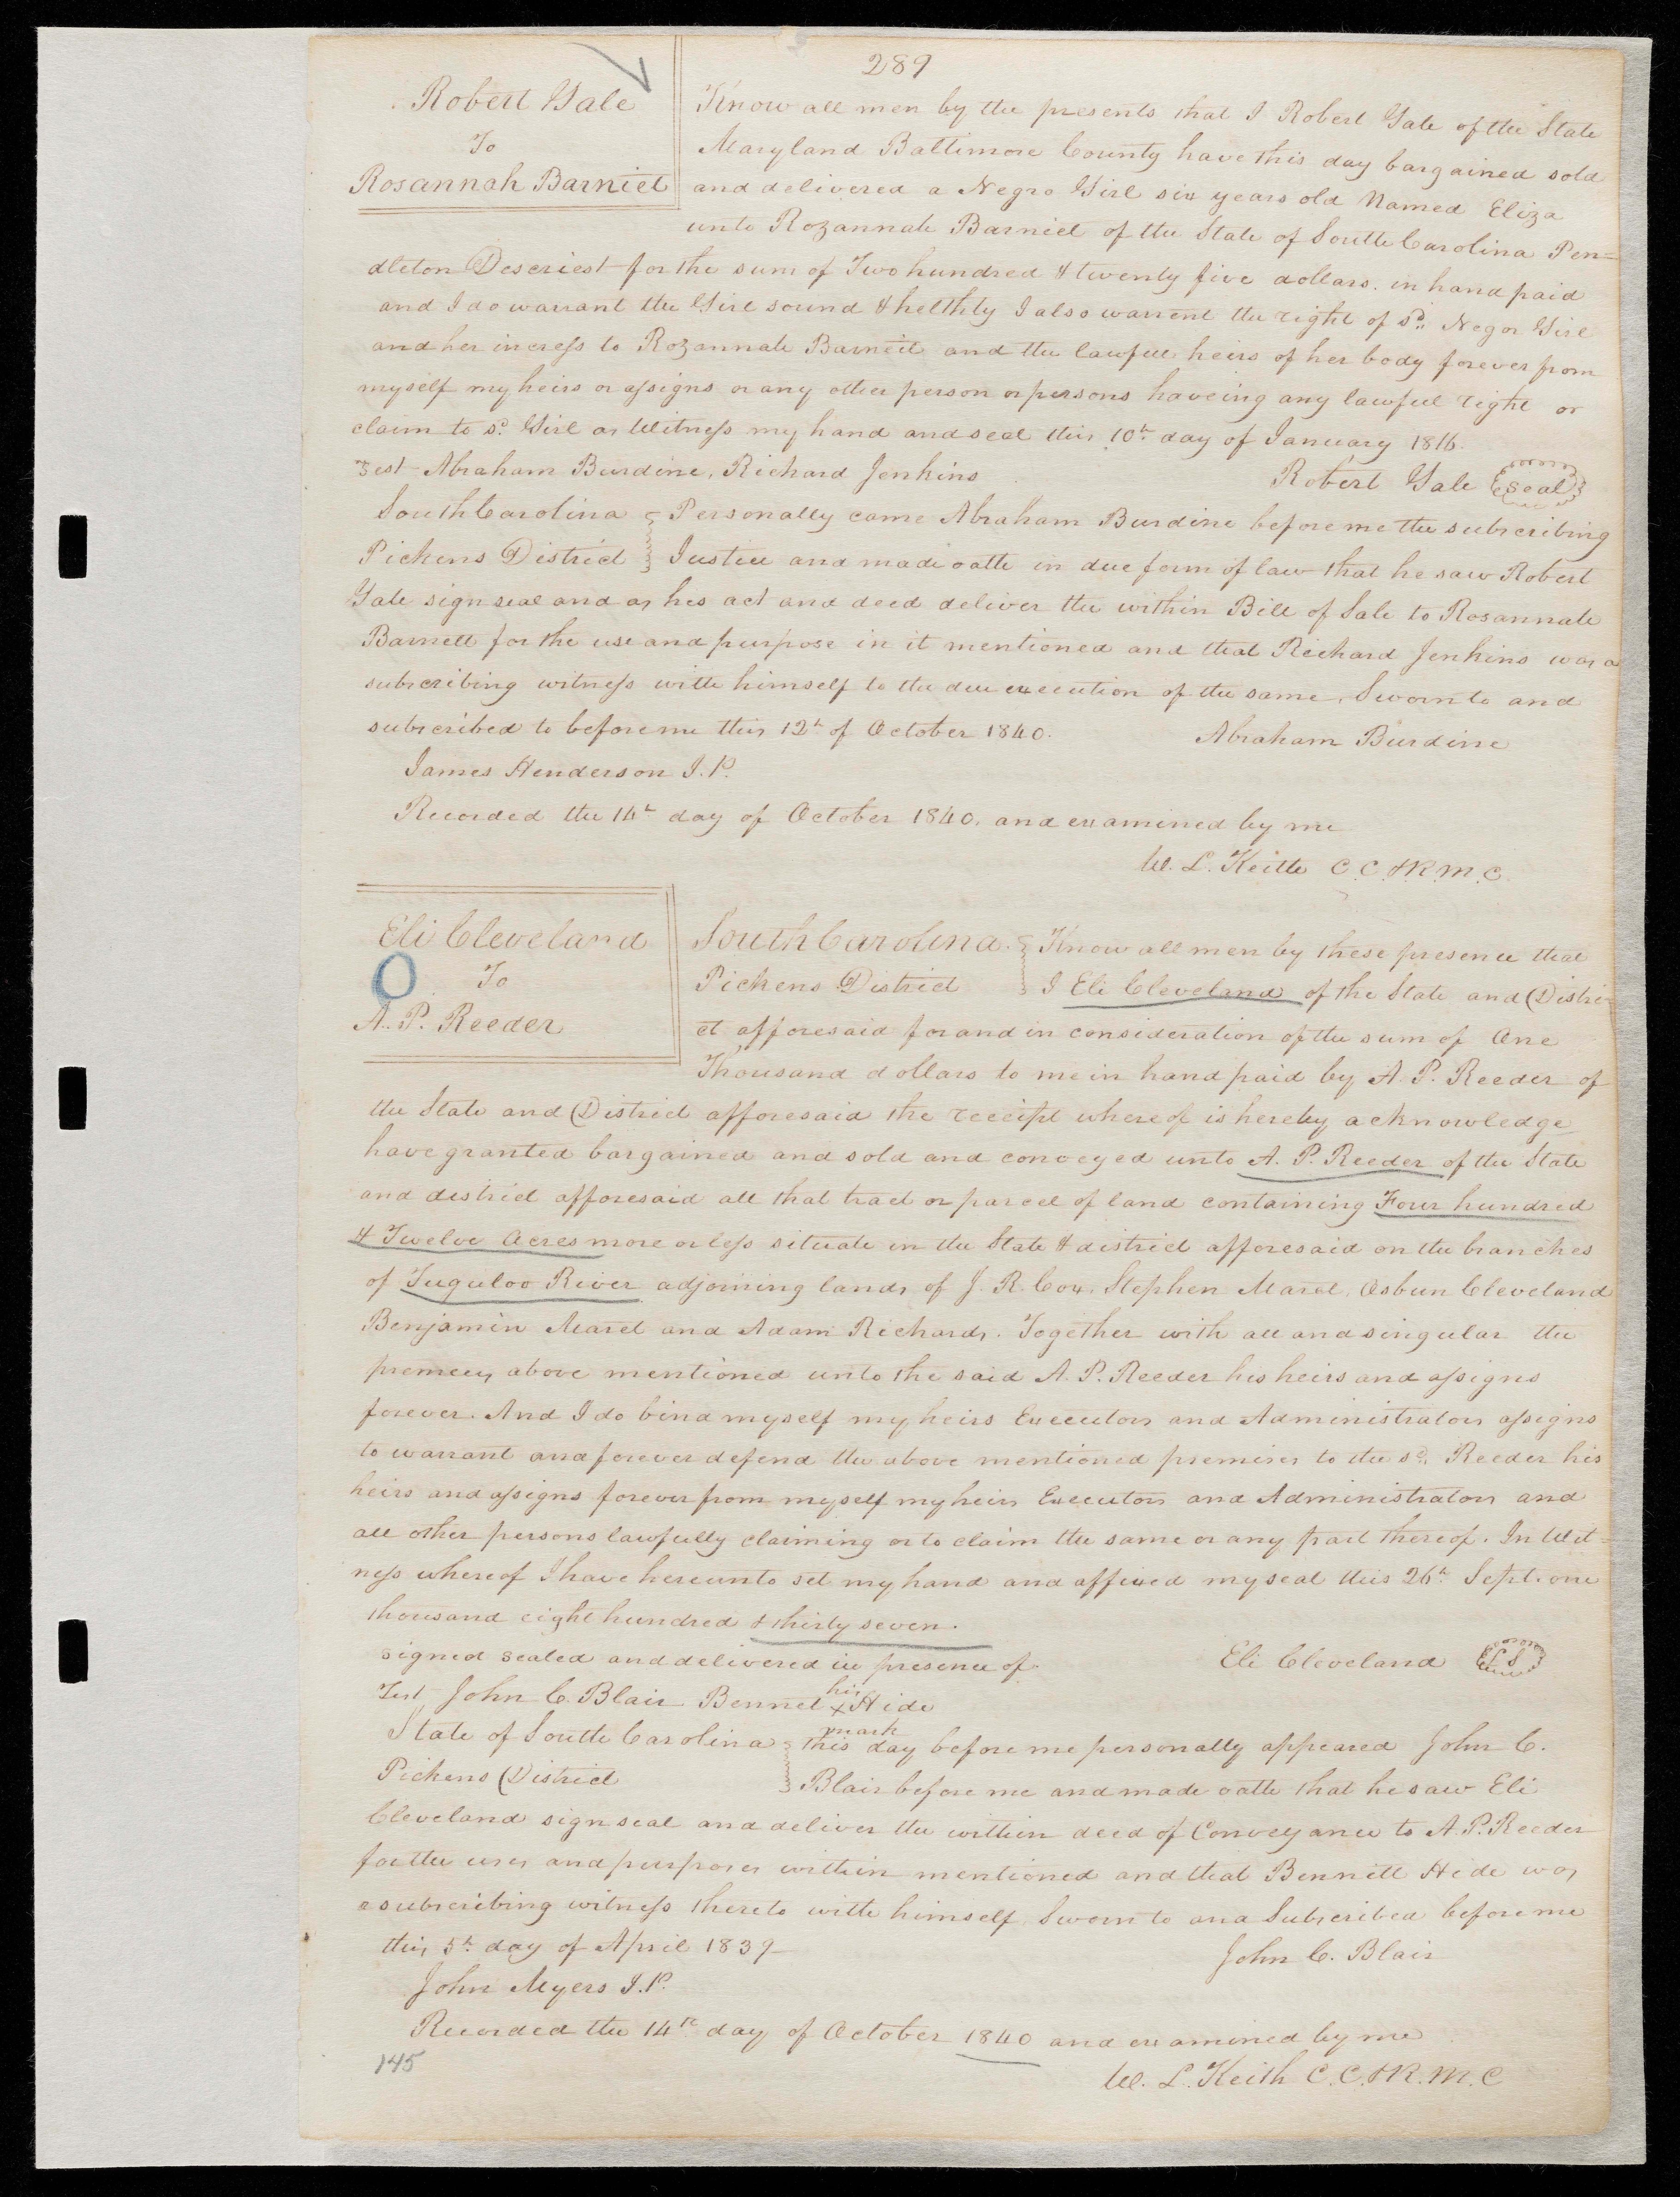 289
Robert Gale
To
Rosannah Barniet
Know all men by the presents that I Robert Gale of the State
Maryland Baltimore County have this day bargained sold
and delivered a Negro Girl six years old Named Eliza
unto Rozannah Barniet of the State of South Carolina Pen=
dleton Descriest for the sum of Two hundred & twenty five dollars. in hand paid
and I do warrant the Girl sound & helthty I also warrent the right of sd. Negor Girl
and her incress to Rozannah Barnett and the lawfull heirs of her body forever from
myself my heirs or assigns or any other person or persons haveing any lawfull right or
claim to sd. Girl as Witness my hand and seal this 10th day of January 1816.
Test Abraham Burdine, Richard Jenkins
Robert Gale seal
South Carolina Personally came Abraham Burdine before me the subscribing
Pickens District Justice and made oath in due form of law that he saw Robert
Gale sign seal and as hes act and deed deliver the within Bill of Sale to Rosannah
Barnett for the use and purpose in it mentioned and that Richard Jenkins was a
subscribing witness with himself to the due execution of the same. Sworn to and
subscribed to before me this 12th of October 1840.
Abraham Burdine
James Henderson J.P.
Recorded the 14th day of October 1840. and examined by me
W. L. Keith C.C. & R.M.C.
Eli Cleveland
To
A. P. Reeder
South Carolina. Know all men by these presence that
Pickens District I Eli Cleveland of the State and Distri-
ct afforesaid for and in consideration of the sum of One
Thousand dollars to me in hand paid by A. P. Reeder of
the State and District afforesaid the receipt whereof is hereby acknowledge
have granted bargained and sold and conveyed unto A. P. Reeder of the State
and district afforesaid all that tract or parcel of land containing Four hundred
& Twelve Acres more or less situate in the State & district afforesaid on the branches
of Tuguloo River adjoining lands of J. R. Cox, Stephen Maret, Osburn Cleveland
Benjamin Maret and Adam Richards. Together with all and singular the
above mentioned unto the said A. P. Reeder his heirs and assigns
forever. And I do bind myself my heirs Executors and Administrators assigns
to warrant and forever defend the above mentioned premises to the sd. Reeder his
heirs and assigns forever from myself my heirs Executors and Administrators and
all other persons lawfully claiming or to claim the same or any part thereof. In Wit=
ness whereof I have hereunto set my hand and affixed my seal this 26th Sept. one
thousand eight hundred & thirty seven.
signed sealed and delivered in presence of
Eli Cleveland L S
Test John C. Blair Bennet his x mark Hide
State of South Carolina this day before me personally appeared John C.
Pickens District Blair before me and made oath that he saw Eli
Cleveland sign seal and deliver the within deed of Conveyance to A. P. Reeder
for the uses and purposes within mentioned and that Bennett Hide was
a subscribing witness thereto with himself. Sworn to and Subscribed before me
this 5th day of April 1839
John C. Blair
John Myers J.P.
Recorded the 14th day of October 1840 and examined by me
W. L. Keith C.C. & R.M.C
145